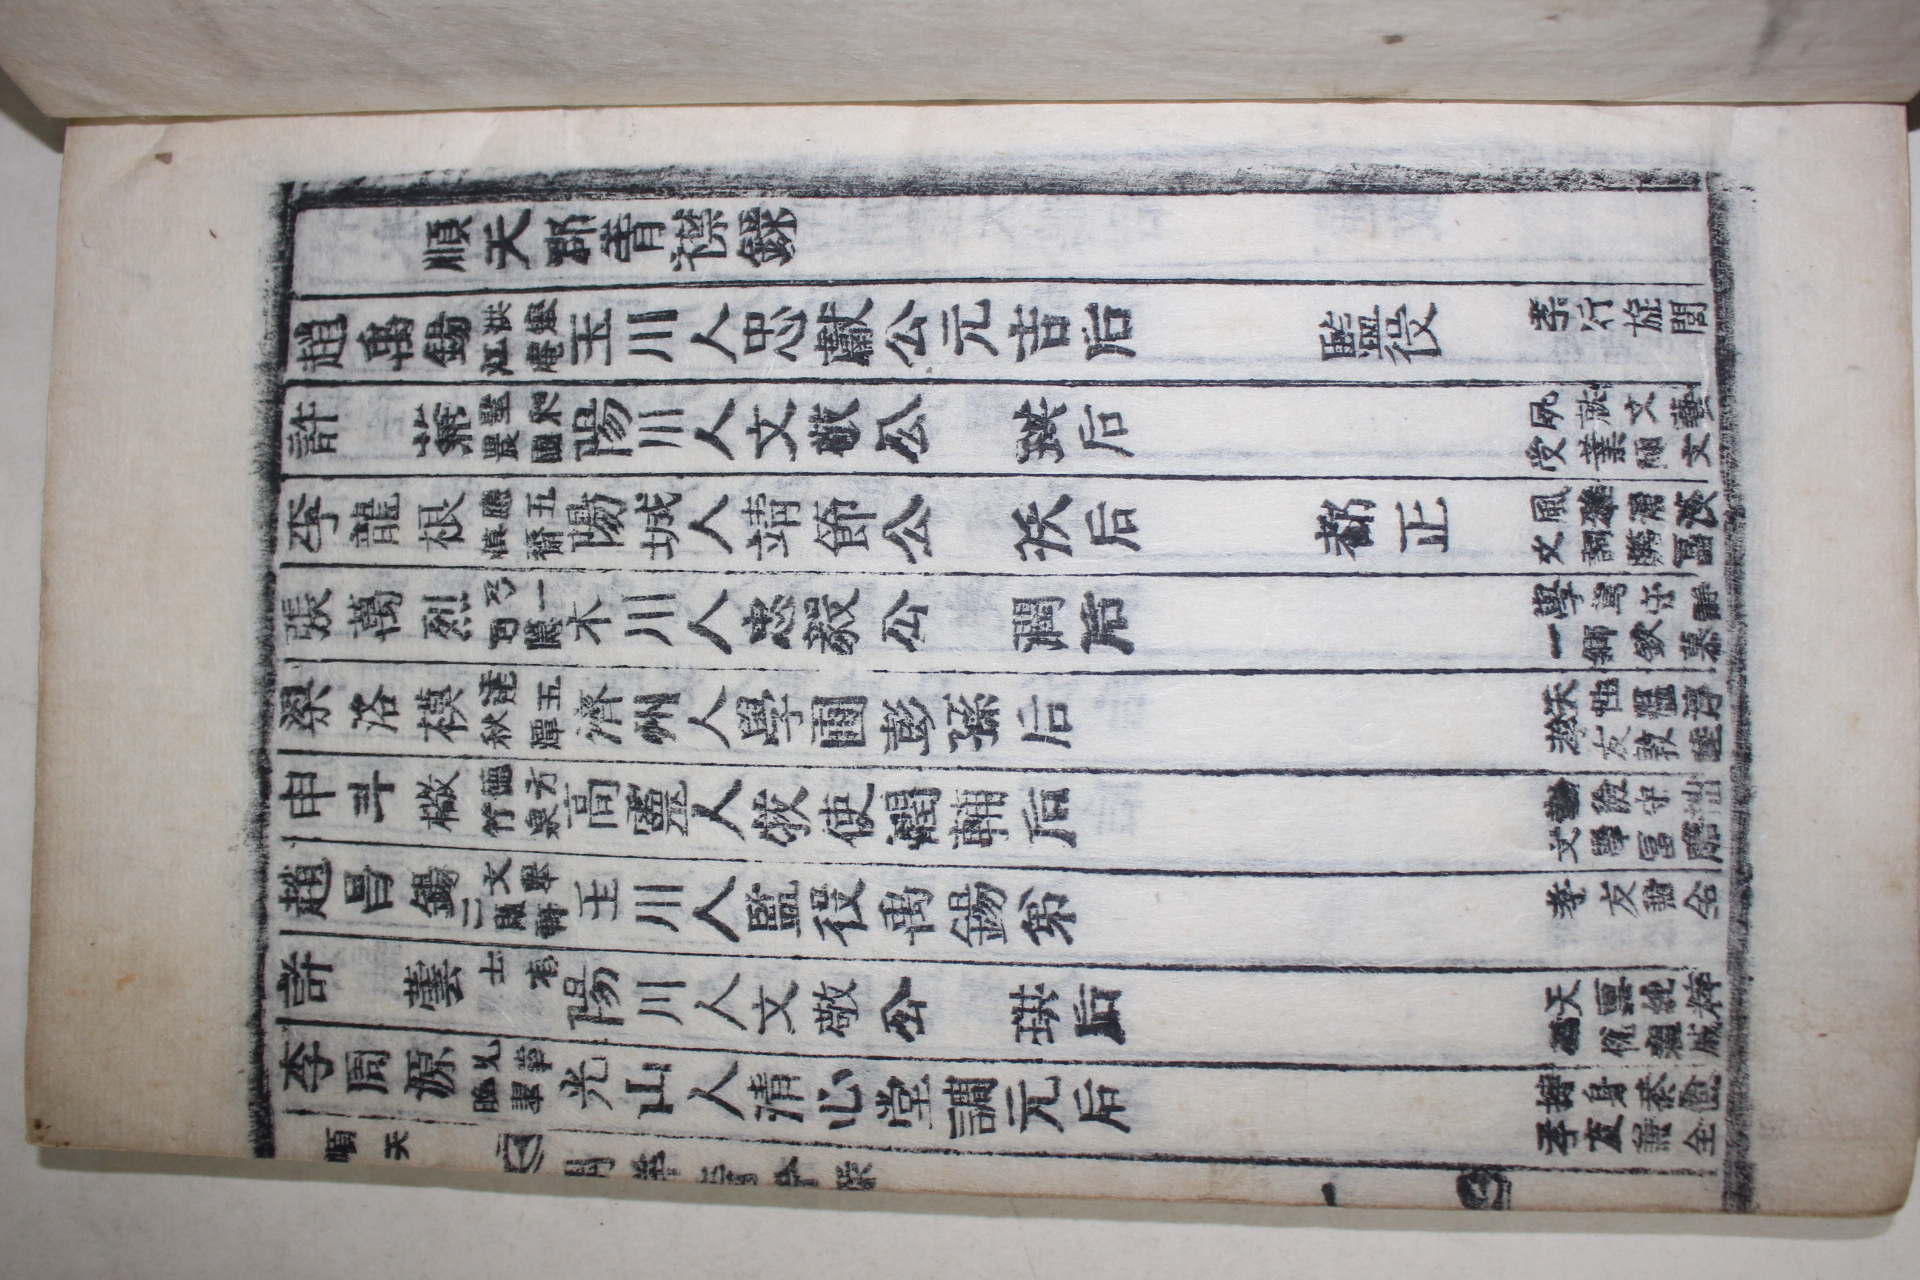 順天郡青襟錄
趙禹錫 洪範 江庵 玉川人忠獻公元吉后 監役 孝行旌閭
許 聖和 農園 陽川人文敬公 珙后 夙就文藝 受業師文
李龍根 應五 慎齋 陽城人靖節公 后 都正 風雅 文詞贍富
張萬烈 乃一 隱 木川人忠毅公 潤后 學 守靜 一鄉欽慕
梁洛模 達五 秋潭 濟州人學圃彭孫后 天性溫淳 孝友敦睦
申斗檄 德方 竹泉 高靈人牧使潤輔后 儉守拙 文學富贍
趙昌錫 文舉 二顧軒 玉川人監役禹錫弟 孝友兼全
許 士有 陽川人文敬公 珙后 天稟純粹
李周源 晚翠 光山人清心堂調元后 持身恭儉 孝友兼全
順天
一